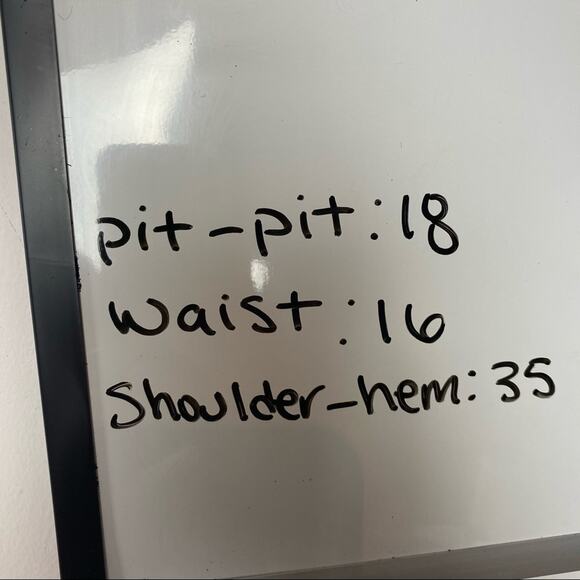 pit-pit: 18
waist: 16
Shoulder-hem: 35